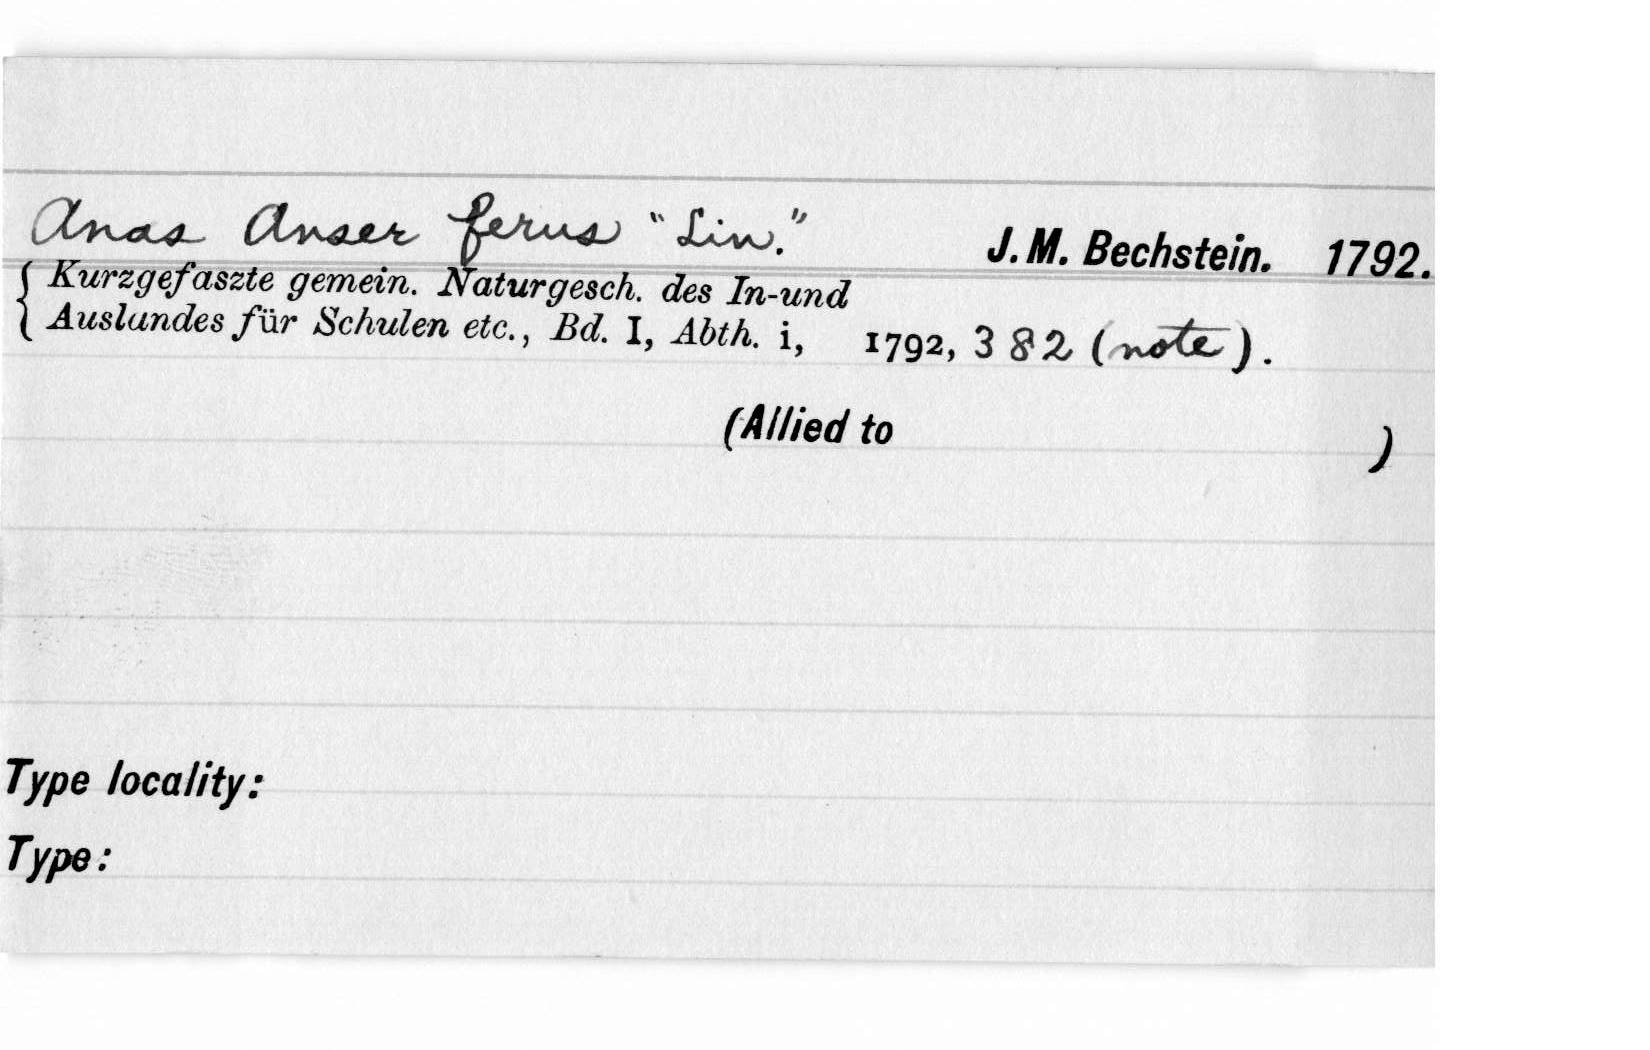 Anas Anser ferus "Lin." J. M. Bechstein. 1792.
{ Kurzgefaszte gemein. Naturgesch. des In-und
Auslandes für Schulen etc., Bd. I, Abth. i, 1792, 382 (note).
(Allied to )
Type locality:
Type: